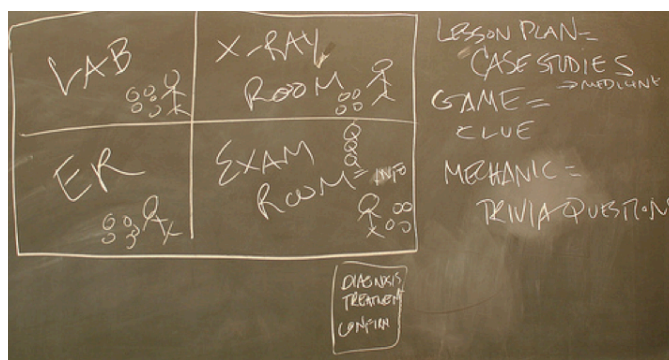 LAB
X-RAY
ROOM
ER
EXAM
ROOM = INFO
DIAGNOSIS
TREATMENT
CONFIRM
LESSON PLAN =
CASE STUDIES
→ MEDICINE
GAME =
CLUE
MECHANIC =
TRIVIA QUESTION